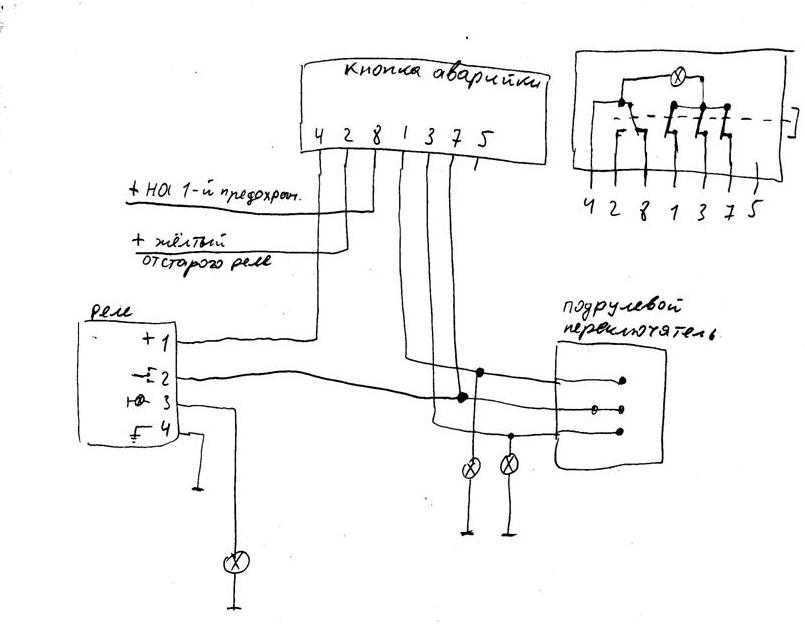 кнопка аварийки
4 2 8 1 3 7 5
4 2 8 1 3 7 5
+ на 1-й предохран.
+ жёлтый
от старого реле
реле
+ 1
2
3
4
подрулевой
переключатель